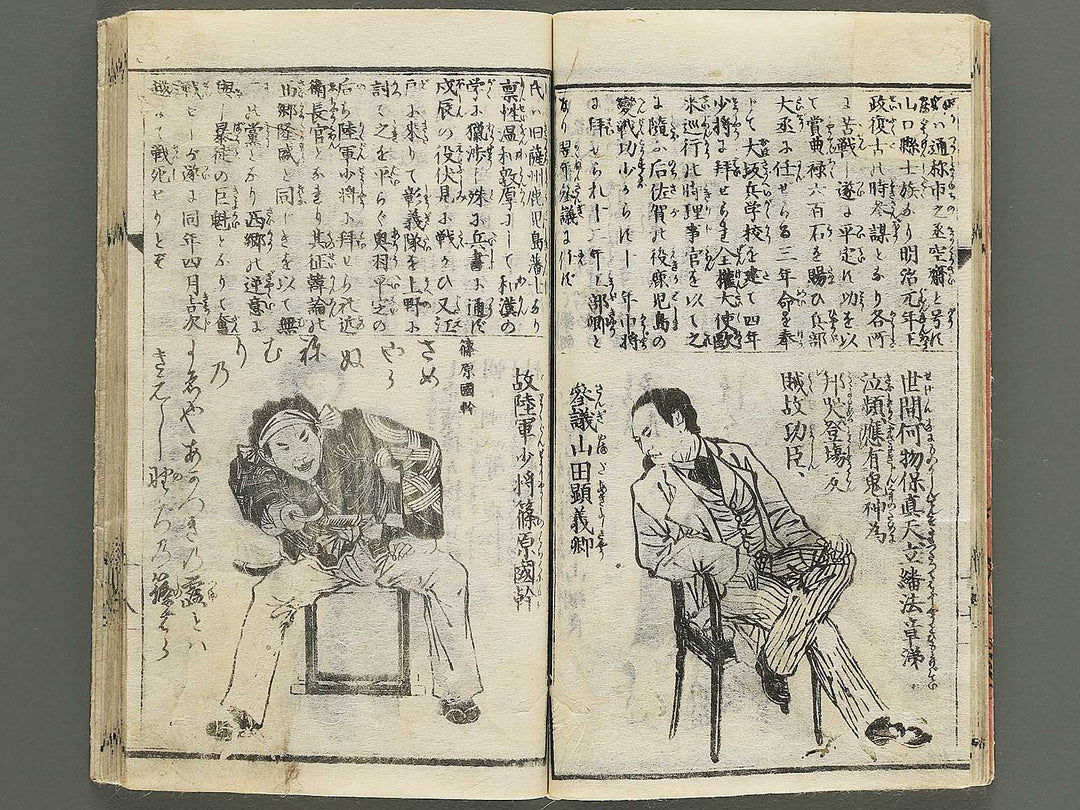 卿ハ通称市之丞空齋と号は
山口縣士族なり明治元年王
政復古の時参謀となり各所
に苦戦し遂に平定の功を以
て賞典禄六百石を賜ひ兵部
大丞に任せらる三年命を奉
じて大坂兵学校を建て四年
少将に拜せらる全権大使歐
米巡行の時理事官を以て之
に随ふ后佐賀の役鹿児島の
變戦功少からず十一年中将
に拜せられ十二年工部卿と
なり翌年参議に
世間何物保真天立繙法章涕
泣頻應有鬼神為
邦哭登場反
賊故功臣
参議山田顕義卿
氏ハ旧薩州鹿児島藩士なり
禀性温和敦厚にして和漢の
学に獵渉し殊に兵書に通ず
戊辰の役伏見に戦ひ又江
戸に来りて彰義隊を上野に
討て之を平らぐ奥羽平定の
后ち陸軍少将に拜せられ近
衛長官となり其征韓論の
西郷隆盛と同じきを以て無
二の黨となり西郷の逆意に
與し暴徒の巨魁となりて奮
戦せしが遂に同年四月吉次
越にて戦死せりとぞ
故陸軍少将篠原國幹
篠原國幹
さめ
やら
ぬ
ねむ
り
乃